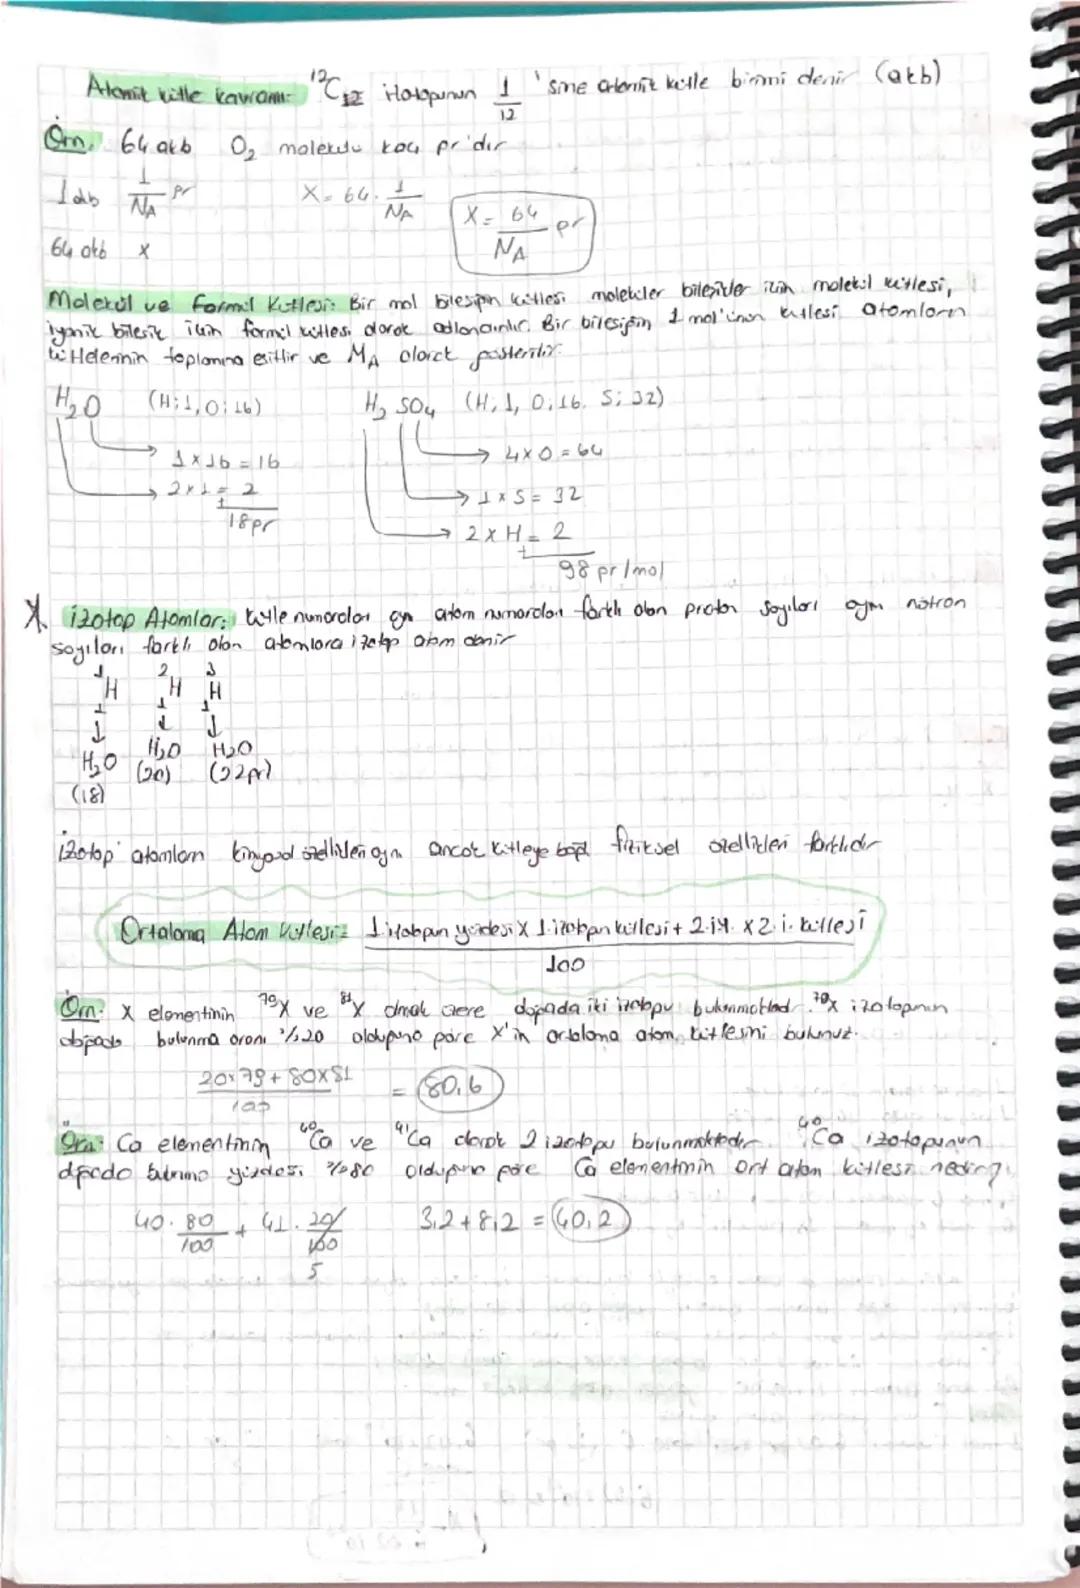 Atomik kütle kavramı: ¹²C₁₂ izotopunun 1/12 'sine atomik kütle birimi denir (akb)
Örn. 64 akb O₂ molekülü kaç gr'dır
1 akb 1/NA gr X = 64 . 1/NA X = 64/NA gr
64 akb x
Molekül ve Formül Kütlesi: Bir mol bileşiğin kütlesi moleküler bileşikler için molekül kütlesi,
iyonik bileşik için formül kütlesi olarak adlandırılır. Bir bileşiğin 1 mol'ünün kütlesi atomların
kütlelerinin toplamına eşittir ve MA olarak gösterilir.
H₂O (H:1, O:16) H₂SO₄ (H:1, O:16, S:32)
1 x 16 = 16 4 x O = 64
2 x 1 = 2 1 x S = 32
+ 18 gr 2 x H = 2
+ 98 gr/mol
X İzotop Atomlar: kütle numaraları aynı atom numaraları farklı olan proton sayıları aynı nötron
sayıları farklı olan atomlara izotop atom denir
¹₁H ²₁H ³₁H
↓ ↓ ↓
H₂O H₂O H₂O
(18) (20) (22gr)
İzotop atomların kimyasal özellikleri aynı ancak kütleye bağlı fiziksel özellikleri farklıdır
Ortalama Atom Kütlesi = 1.izotopun yüzdesi X 1.izotopun kütlesi + 2.i.y. x 2.i. kütlesi
100
Örn: X elementinin ⁷⁹X ve ⁸¹X olmak üzere doğada iki izotopu bulunmaktadır. ⁷⁹X izotopunun
doğada bulunma oranı %20 olduğuna göre X'in ortalama atom kütlesini bulunuz.
20x79 + 80x81 / 100 = 80,6
Örn: Ca elementinin ⁴⁰Ca ve ⁴¹Ca olarak 2 izotopu bulunmaktadır. ⁴⁰Ca izotopunun
doğada bulunma yüzdesi %80 olduğuna göre Ca elementinin ort atom kütlesi nedir?
40 . 80/100 + 41 . 20/100 3,2 + 8,2 = 40,2
5